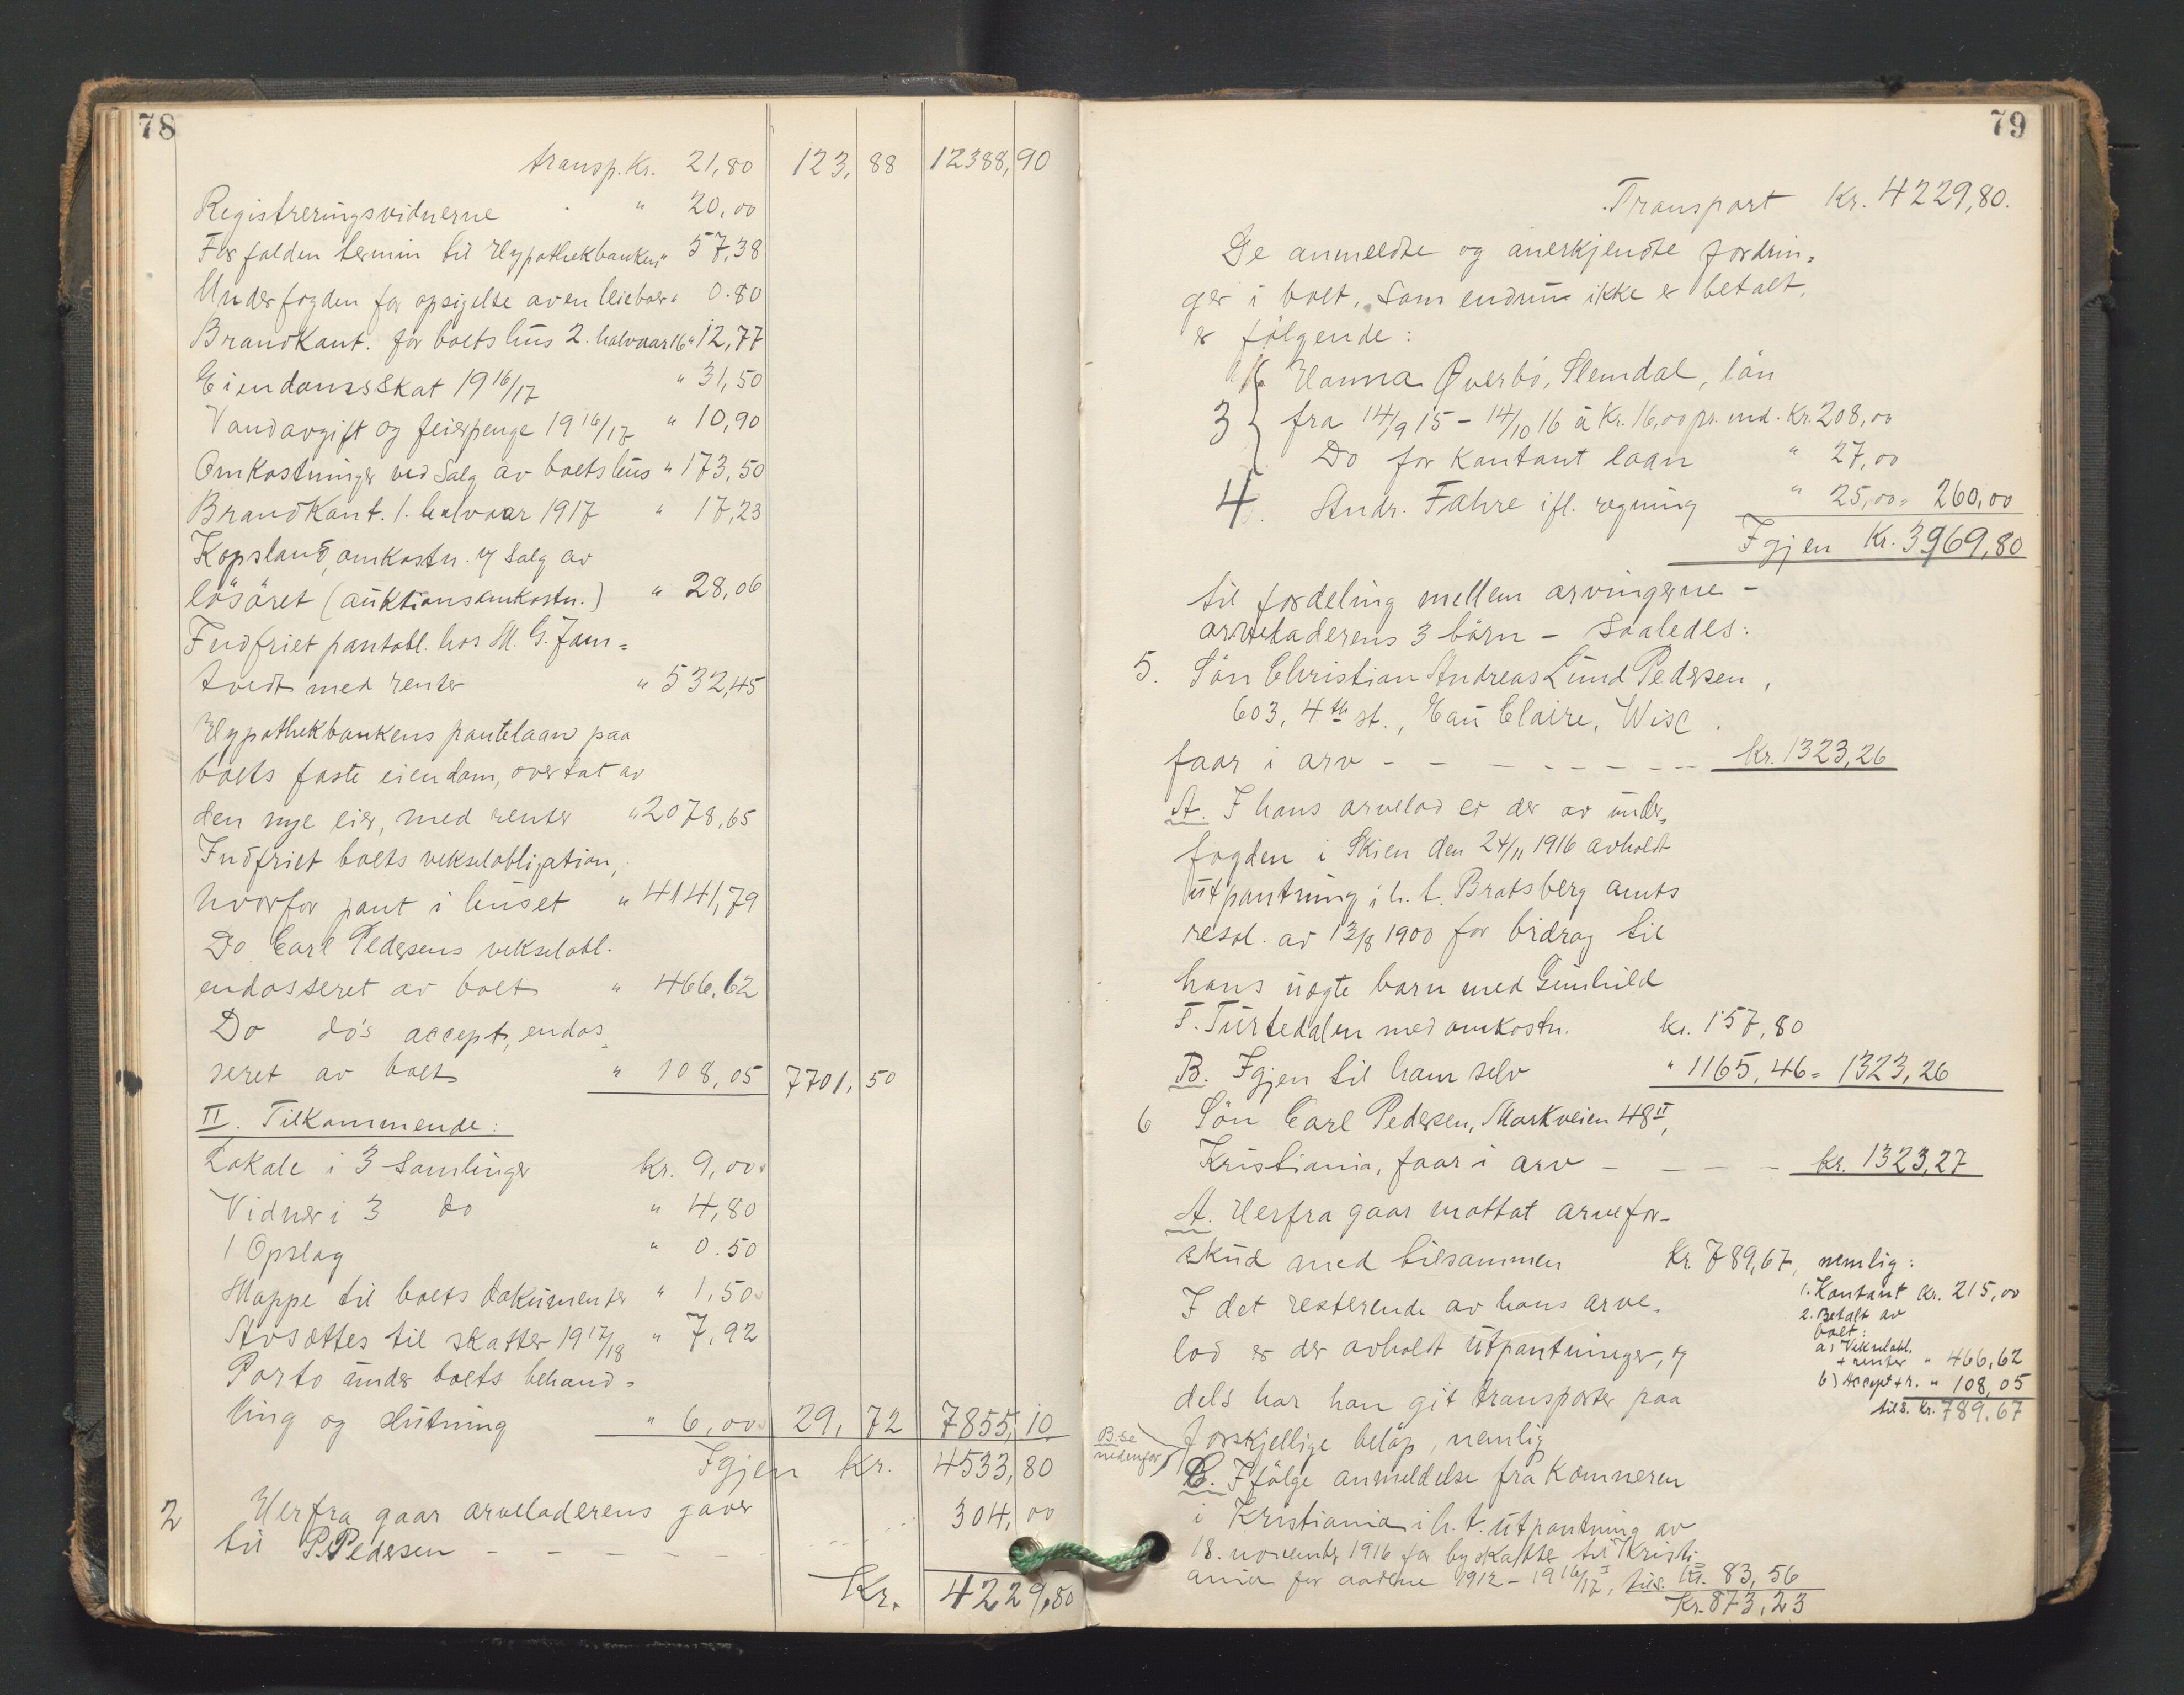 78
transp. Kr. 21,80 123,88 12388,90
Registreringsvidnerne " 20,00
Forfalden termin til Hypothekbanken " 57,38
Underfogden for opsigelse av en leieboer " 0.80
Brandkont. for boets hus 2. halvaar 16 " 12,77
Eiendomsskat 1916/17 " 31,50
Vandavgift og feierpenge 1916/17 " 10,90
Omkostninger ved salg av boets hus " 173,50
Brandkont. 1. halvaar 1917 " 17,23
Kopsland, omkostn. v/ salg av
løsøret (auktionsomkostn.) " 28,06
Indfriet pantobl. hos M. G. Jam=
tvedt med renter " 532,45
Hypothekbankens pantelaan paa
boets faste eiendom, overtat av
den nye eier, med renter " 2078,65
Indfriet boets vekselobligation,
hvorfor pant i huset " 4141,79
Do Carl Pedersens vekselobl.
endosseret av boet " 466,62
Do do's accept, endos=
seret av boet " 108,05 7701,50
II. Tilkommende:
Lokale i 3 samlinger kr. 9,00
Vidner i 3 do " 4,80
1 Opslag " 0.50
Mappe til boets dokumenter " 1,50
Avsættes til skatter 1917/18 " 7,92
Porto under boets behand=
ling og slutning " 6,00 29,72 7855,10
Igjen Kr. 4533,80
2 Herfra gaar arveladerens gaver
til P. Pedersen - - - - - - 304,00
Kr. 4229,80
79
Transport Kr. 4229,80.
De anmeldte og anerkjendte fordrin=
ger i boet, som endnu ikke er betalt,
er følgende:
Hanna Øverbö, Slemdal, lön
3 fra 14/9 15 - 14/10 16 à Kr. 16,00 pr. md. Kr. 208,00
Do for kontant laan " 27,00
4. Andr. Fahre ifl. regning " 25,00 = 260,00
Igjen Kr. 3969,80
til fordeling mellem arvingerne -
arveladerens 3 børn - saaledes:
5. Søn Christian Andreas Lund Pedersen,
603, 4th st., Eau Claire, Wisc.
faar i arv - - - - - - - - Kr. 1323,26
A. I hans arvelod er der av under=
fogden i Skien den 24/11 1916 avholdt
utpantning i h. t. Bratsberg amts
resol. av 13/8 1900 for bidrag til
hans uegte barn med Gunhild
T. Turtedalen med omkostn. kr. 157,80
B. Igjen til ham selv " 1165,46 = 1323,26
6 Søn Carl Pedersen, Markveien 48 II,
Kristiania, faar i arv - - - - kr. 1323,27
A. Herfra gaar mottat arvefor-
skud med tilsammen Kr. 789,67, nemlig:
1. Kontant kr. 215,00
2. Betalt av
boet:
a) Vekselobl.
+ renter " 466,62
b) Accept + r. " 108,05
tils. Kr. 789,67
I det resterende av hans arve=
lod er der avholdt utpantninger, og
dels har han git transporter paa
forskjellige beløp, nemlig
B. se
nedenfor
C. Ifølge anmeldelse fra Kæmneren
i Kristiania i h. t. utpantning av
18. november 1916 for byskatter til Kristi-
ania for aarene 1912 - 1916/17 I, tils. kr. 83,56
Kr. 873,23